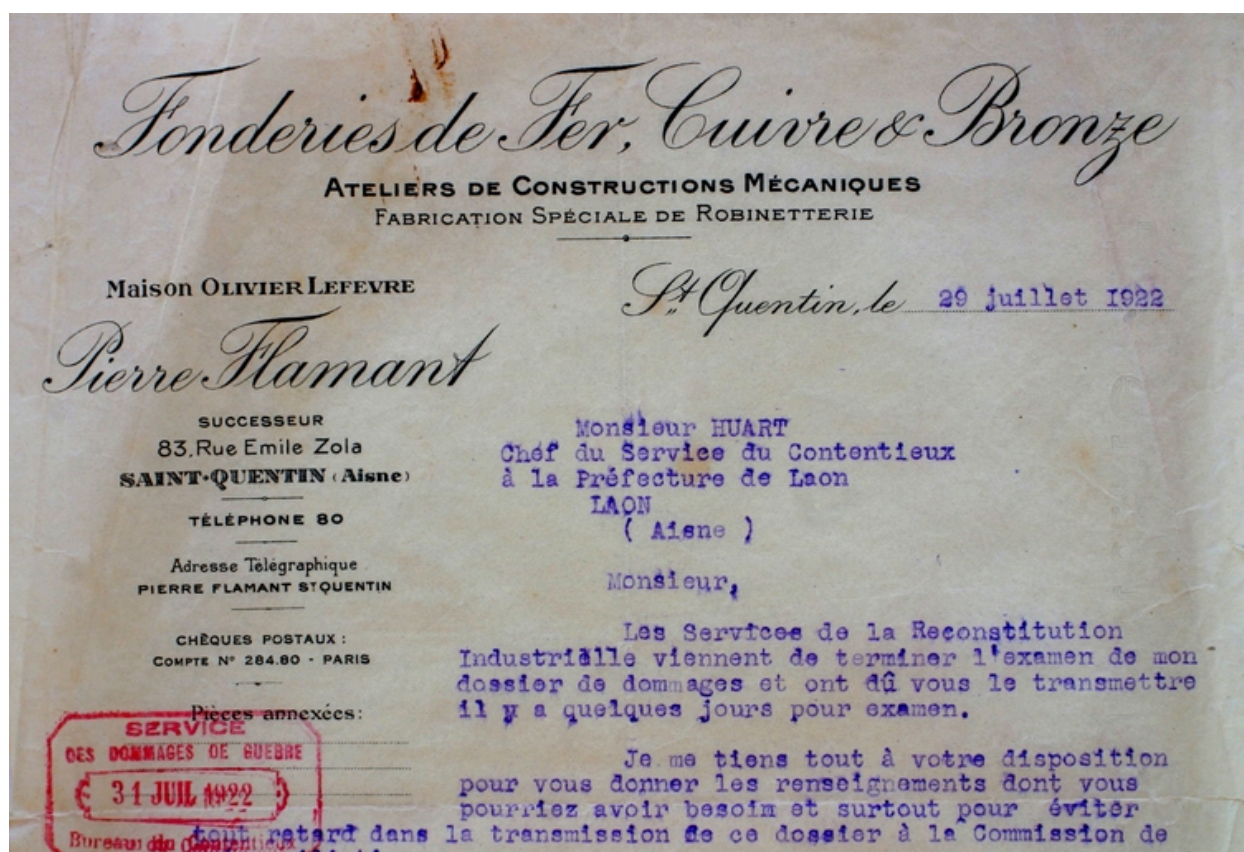 Fonderies de Fer, Cuivre & Bronze
ATELIERS DE CONSTRUCTIONS MÉCANIQUES
FABRICATION SPÉCIALE DE ROBINETTERIE
Maison OLIVIER LEFEVRE
St Quentin, le 29 juillet 1922
Pierre Flamant
SUCCESSEUR
83, Rue Emile Zola
SAINT-QUENTIN (Aisne)
TÉLÉPHONE 80
Adresse Télégraphique
PIERRE FLAMANT ST QUENTIN
CHÈQUES POSTAUX :
COMPTE N° 284.80 - PARIS
Pièces annexées :
SERVICE
DES DOMMAGES DE GUERRE
31 JUIL 1922
Bureau du Contentieux
Monsieur HUART
Chef du Service du Contentieux
à la Préfecture de Laon
LAON
( Aisne )
Monsieur,
Les Services de la Reconstitution
Industrielle viennent de terminer l'examen de mon
dossier de dommages et ont dû vous le transmettre
il y a quelques jours pour examen.
Je me tiens tout à votre disposition
pour vous donner les renseignements dont vous
pourriez avoir besoim et surtout pour éviter
tout retard dans la transmission de ce dossier à la Commission de